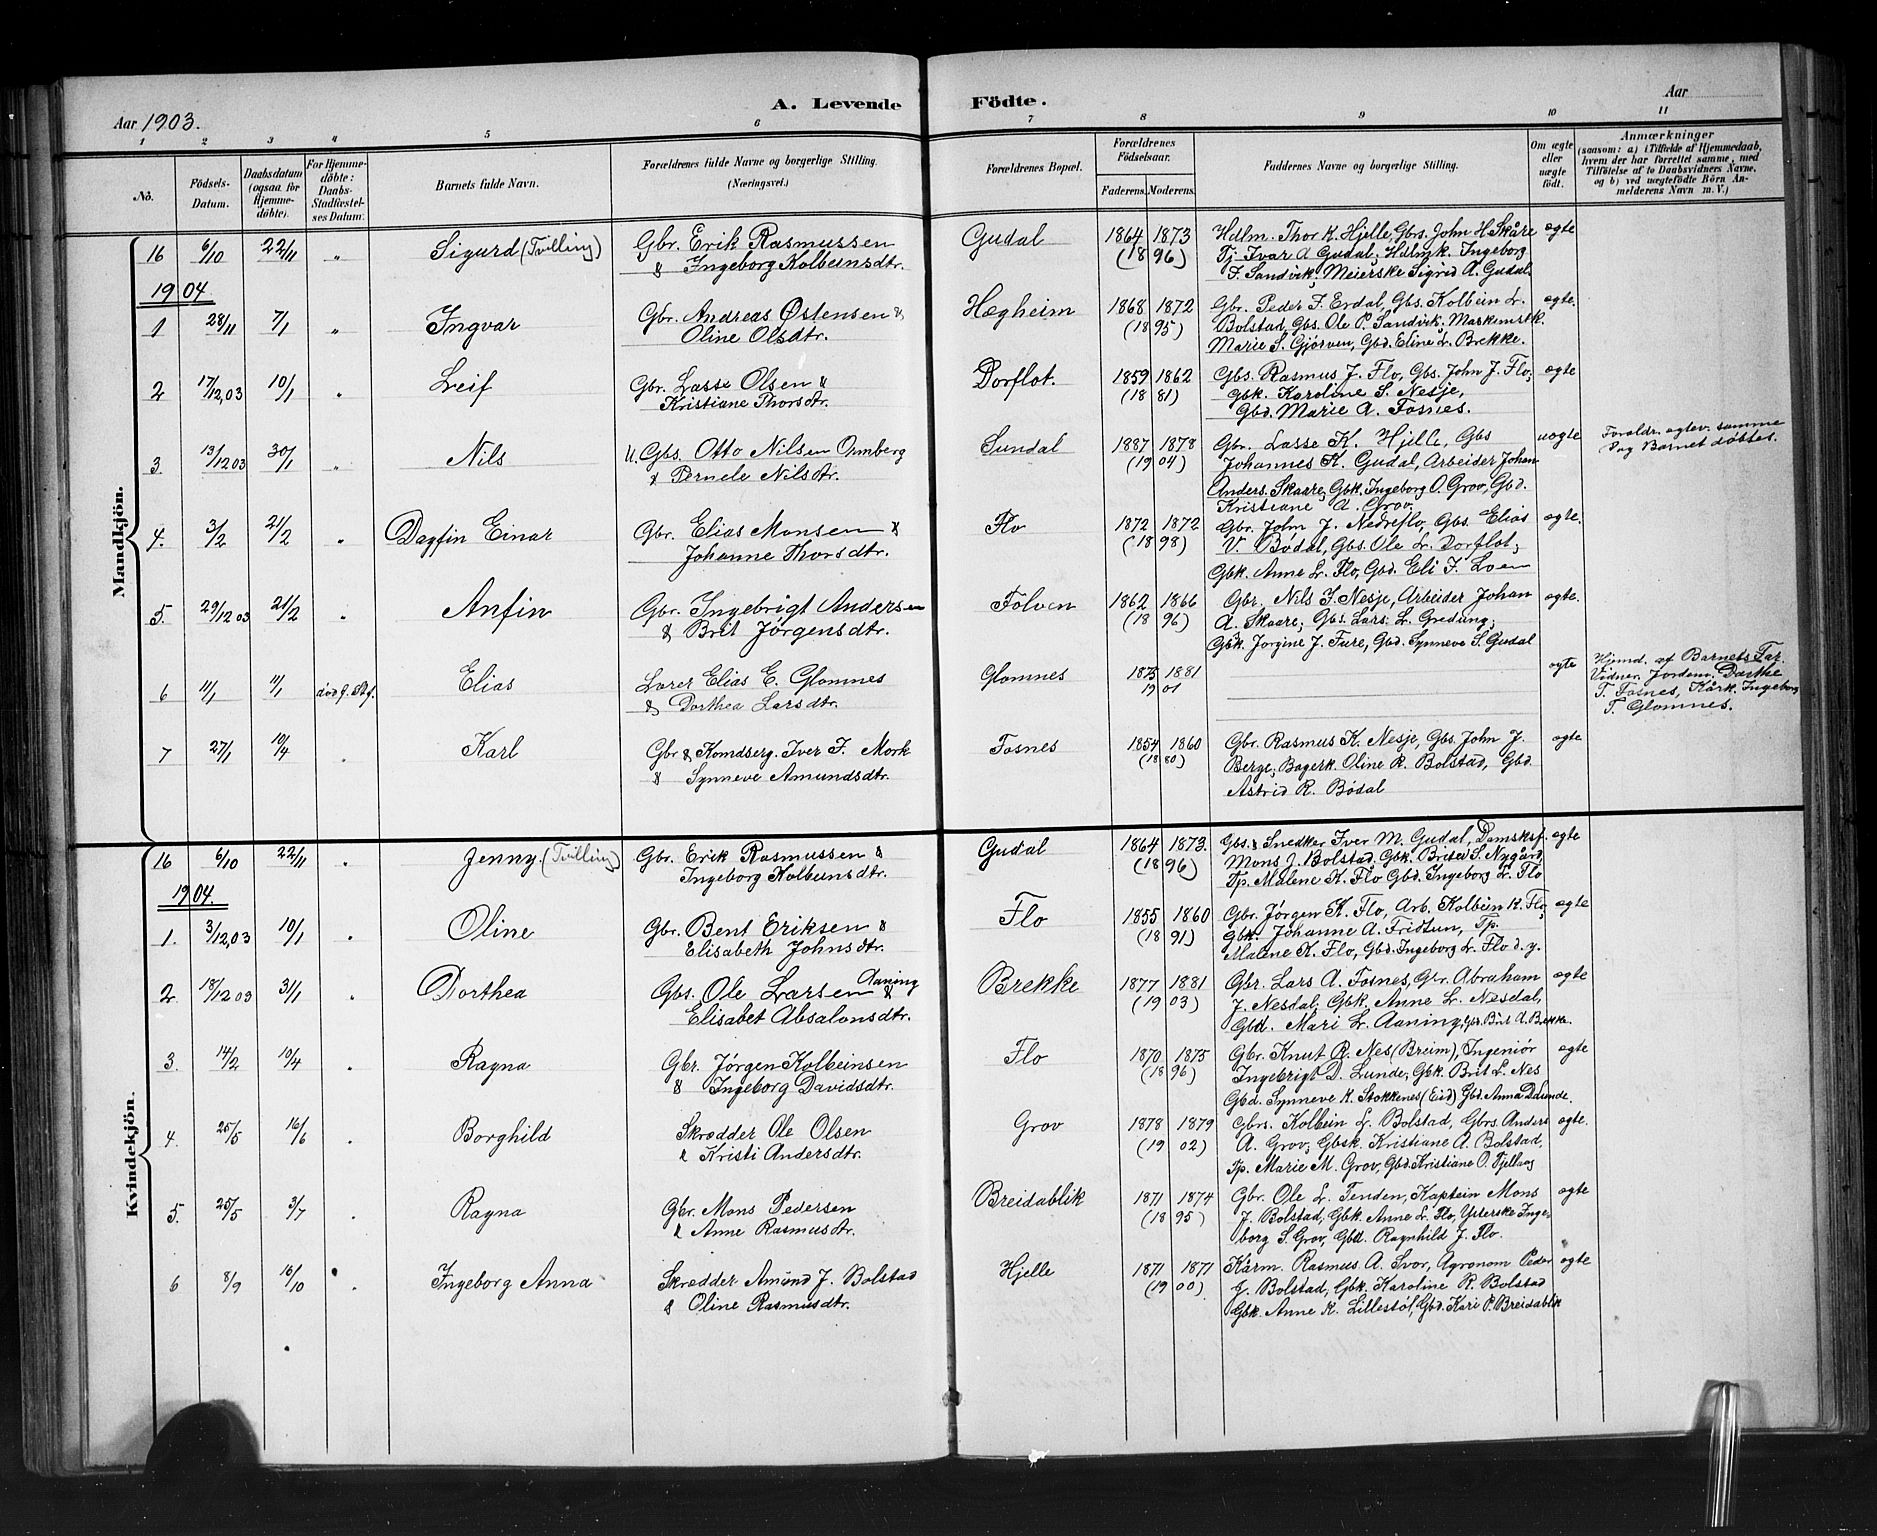 A. Levende Födte.
Aar 1903.
Aar
1 2 3 4 5 6 7 8 9 10 11
No.
Födsels-Datum.
Daabsdatum (ogsaa for Hjemmedöbte).
For Hjemmedöbte: Daabs-Stadfæstelses Datum.
Barnets fulde Navn.
Forældrenes fulde Navne og borgerlige Stilling. (Næringsvei.)
Forældrenes Bopæl.
Forældrenes Födselsaar.
Faderens. Moderens.
Faddernes Navne og borgerlige Stilling.
Om ægte eller uægte födt.
Anmærkninger (saasom: a) i Tilfælde af Hjemmedaab, hvem der har forrettet samme, med Tilföielse af to Daabsvidners Navne, og b) ved uægtefödte Börn Anmelderens Navn m. V.)
Mandkjön.
16 6/10 22/11 " Sigurd (Tvilling) Gbr. Erik Rasmussen Gudal 1864 1873 Hdlm. Thor K. Hjelle, Gbs. John H Skåre ægte
& Ingeborg Kolbeinsdtr. (1896) Tj. Ivar A Gudal; Hdlmk. Ingeborg
J. Sandvik, Meierske Sigrid A. Gudal.
1904
1 28/11 7/1 " Ingvar Gbr. Andreas Østensen & Hægheim 1868 1872 Gbr. Peder J. Erdal, Gbs. Kolbein L. ægte.
Oline Olsdtr. (1895) Bolstad, Gbs. Ole P. Sandvik.
Marie S. Gjørven, Gbd. Eline L. Brekke.
2 17/12,03 10/1 " Leif Gbr. Lasse Olsen & Dorflot. 1859 1862 Gbs. Rasmus J. Flo, Gbs. John J. Flo, ægte
Kristiane Thorsdtr. (1881) Gbk. Karoline S. Nesje,
Gbd. Marie A. Fosnes.
3. 13/12 03 30/1 " Nils U. Gbs. Otto Nilsen Sundal 1887 1878 Gbr. Lasse K. Hjelle, Gbs uægte Foreldr. ægtev. samme
& Pernele Nilsdtr. (1904) Johannes K. Gudal, Arbeider Johan Dag Barnet døbtes.
Anders. Skaare; Gbk. Ingeborg O. Grov, Gbd.
Kristiane A. Grov.
4. 3/2 21/2 " Dagfin Einar Gbr. Elias Monsen & Flo 1872 1872 Gbr. John J. Nedreflo, Gbs. Elias ægte.
Johanne Thorsdtr. (1898) V. Bødal, Gbs. Ole L. Dorflot;
Gbk. Anne L. Flo, Gbd. Eli J. Loen
5. 29/12 03 21/2 " Anfin Gbr. Ingebrigt Andersen Folven 1862 1866 Gbr. Nils S. Nesje, Arbeider Johan ægte.
& Brit Jørgensdtr. (1896) A. Skaare; Gbs. Lars L. Gredung;
Gbk. Jorgine J. Fure, Gbd. Synneve S. Gudal
6 11/1 11/1 død f. Stf. Elias Lærer Elias E. Glomnes Glomnes 1875 1881 ægte Hjmd. af Barnets Far.
& Dorthea Larsdtr. 1901 Vidner. Jordem. Dorthe
T. Fosnes, Kårk. Ingeborg
T. Glomnes.
7 27/1 10/4 " Karl Gbr & Komdserg. Iver J. Mork Fosnes 1854 1860 Gbr. Rasmus K. Nesje, Gbs. John J. ægte
& Synneve Amundsdtr. (1880) Berge; Bagerk. Oline R. Bolstad, Gbd.
Astrid R. Bødal
Kvindekjön.
16 6/10 22/11 " Jenny (Tvilling) Gbr. Erik Rasmussen & Gudal 1864 1873. Gbs. & Snedker Iver M. Gudal, Damsksf. ægte
Ingeborg Kolbeinsdtr. (1896) Mons J. Bolstad, Gbk. Brite S. Nygård,
Tp. Malene K. Flo Gbd. Ingeborg L. Flo
1904.
1. 3/12,03 10/1 " Oline Gbr. Bent Eriksen & Flo 1855 1860 Gbr. Jørgen K. Flo, Arb. Kolbein K. Flo, ægte
Elisabeth Johnsdtr. (1891) Gbk. Johanne A. Fridtun, Tp.
Malene K. Flo, Gbd. Ingeborg L. Flo d. y.
2. 18/12 03 31/1 " Dorthea Gbs. Ole Larsen Aaning & Brekke 1877 1881 Gbr. Lars A. Fosnes, Gbr. Abraham ægte
Elisabet Absalonsdtr. (1903) J. Nesdal; Gbk. Anne L. Nesdal,
Gbd. Mari L. Aaning, Gbr. Brit A. Brekke.
3. 14/2 10/4 " Ragna Gbr. Jørgen Kolbeinsen Flo 1870 1875 Gbr. Knut R. Nes (Breim), Ingeniør ægte
& Ingeborg Davidsdtr. (1896) Ingebrigt D. Lunde; Gbk. Brit L. Nes
Gbd. Synneve K. Stokkenes (Eid) Gbd. Anna D. Lunde.
4. 25/5 16/6 " Borghild Skrædder Ole Olsen Grov 1878 1879 Gbrs. Kolbein L. Bolstad, Gbrs. Anders ægte.
& Kristi Andersdtr. (1902) A. Grov; Gbsk. Kristiane A. Bolstad,
Tp. Marie M. Grov, Gbd. Kristiane O. Tjellaug
5. 25/5 3/7 " Ragna Gbr. Mons Pedersen Breidablik 1871 1874 Gbr. Ole L. Tenden, Kaptein Mons ægte
& Anne Rasmusdtr. (1895) J. Bolstad, Gbk. Anne L. Flo, Ysterske Inge-
borg S. Grov, Gbd. Ragnhild J. Flo.
6 8/9 16/10 " Ingeborg Anna Skrædder Amund J. Bolstad Hjelle 1871 1871 Kårm. Rasmus A. Svor, Agronom Peder ægte
& Oline Rasmusdtr. (1900) J. Bolstad, Gbk. Karoline R. Bolstad
Gbk. Anne K. Lillestøl, Gbd. Kari P. Breidablik